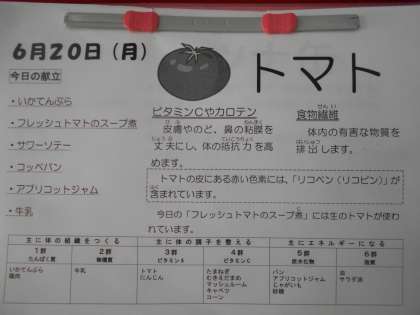 6月20日（月）
トマト
今日の献立
・いかてんぷら
・フレッシュトマトのスープ煮
・サワーソテー
・コッペパン
・アプリコットジャム
・牛乳
ビタミンCやカロテン
皮膚やのど、鼻の粘膜を
丈夫にし、体の抵抗力を高
めます。
食物繊維
体内の有害な物質を
排出します。
トマトの皮にある赤い色素には、「リコペン（リコピン）」が
含まれています。
今日の「フレッシュトマトのスープ煮」には生のトマトが使わ
れています。
主に体の組織をつくる 主に体の調子を整える 主にエネルギーになる
1群 2群 3群 4群 5群 6群
たんぱく質 無機質 ビタミンA ビタミンC 炭水化物 脂質
いかてんぷら 牛乳 トマト たまねぎ パン 油
鶏肉 にんじん えだまめ アプリコットジャム サラダ油
マッシュルーム じゃがいも
キャベツ 砂糖
コーン